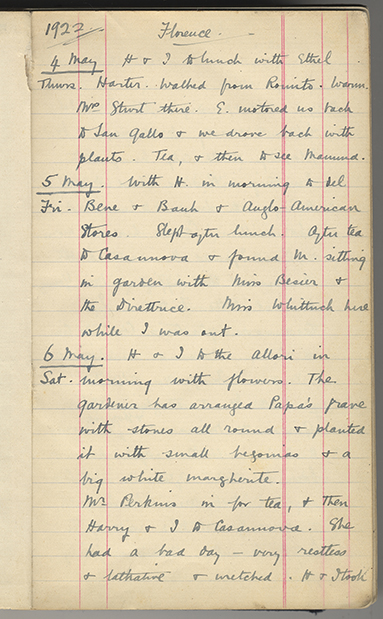 1922 Florence.
4 May H & I to lunch with Ethel
Thurs. Harter. Walked from Romito. Warm.
Mrs Sturt there. E. motored us back
to San Gallo & we drove back with
plants. Tea, & then to see Mamma.
5 May. With H. in morning to del
Fri. Bene & Bank & Anglo-American
Stores. Slept after lunch. After tea
to Casanuova & found M. sitting
in garden with Miss Besier &
the Direttrice. Miss Whittuck here
while I was out.
6 May. H & I to the Allori in
Sat. morning with flowers. The
gardener has arranged Papa's grave
with stones all round & planted
it with small begonias & a
big white margherite.
Mr Perkins in for tea, & then
Harry & I to Casanuova. She
had a bad day – very restless
& talkative & wretched. H & I took